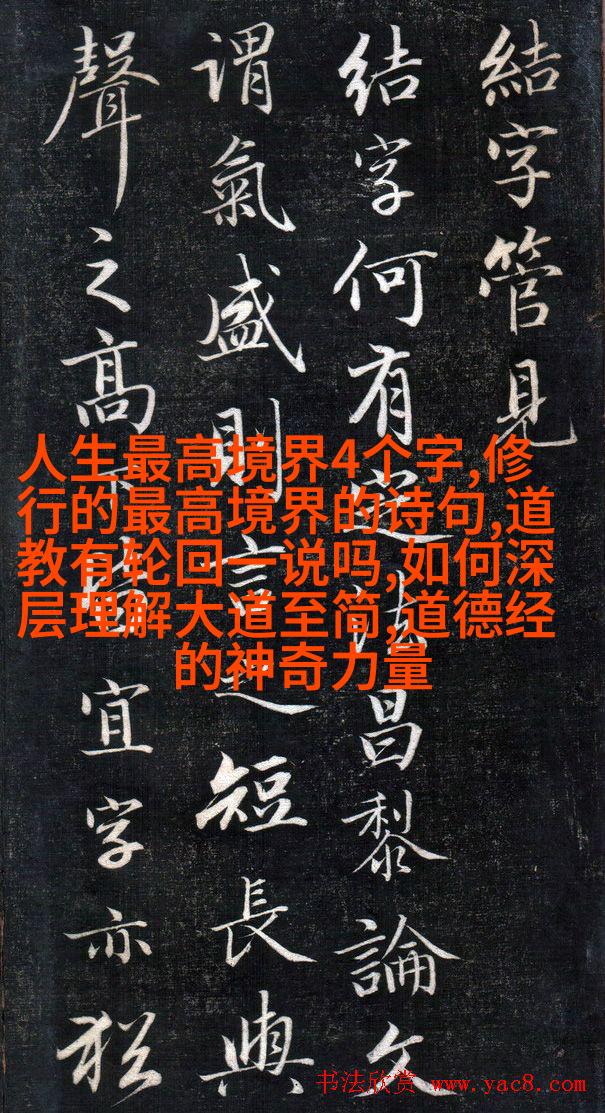 結字管見
結字何有定法昌黎論文
謂氣盛則言之短長與
聲之高下皆宜字亦猶
人生最高境界4个字,修
行的最高境界的诗句,道
教有轮回一说吗,如何深
层理解大道至简,道德经
的神奇力量
书法欣赏 www.yac8.com